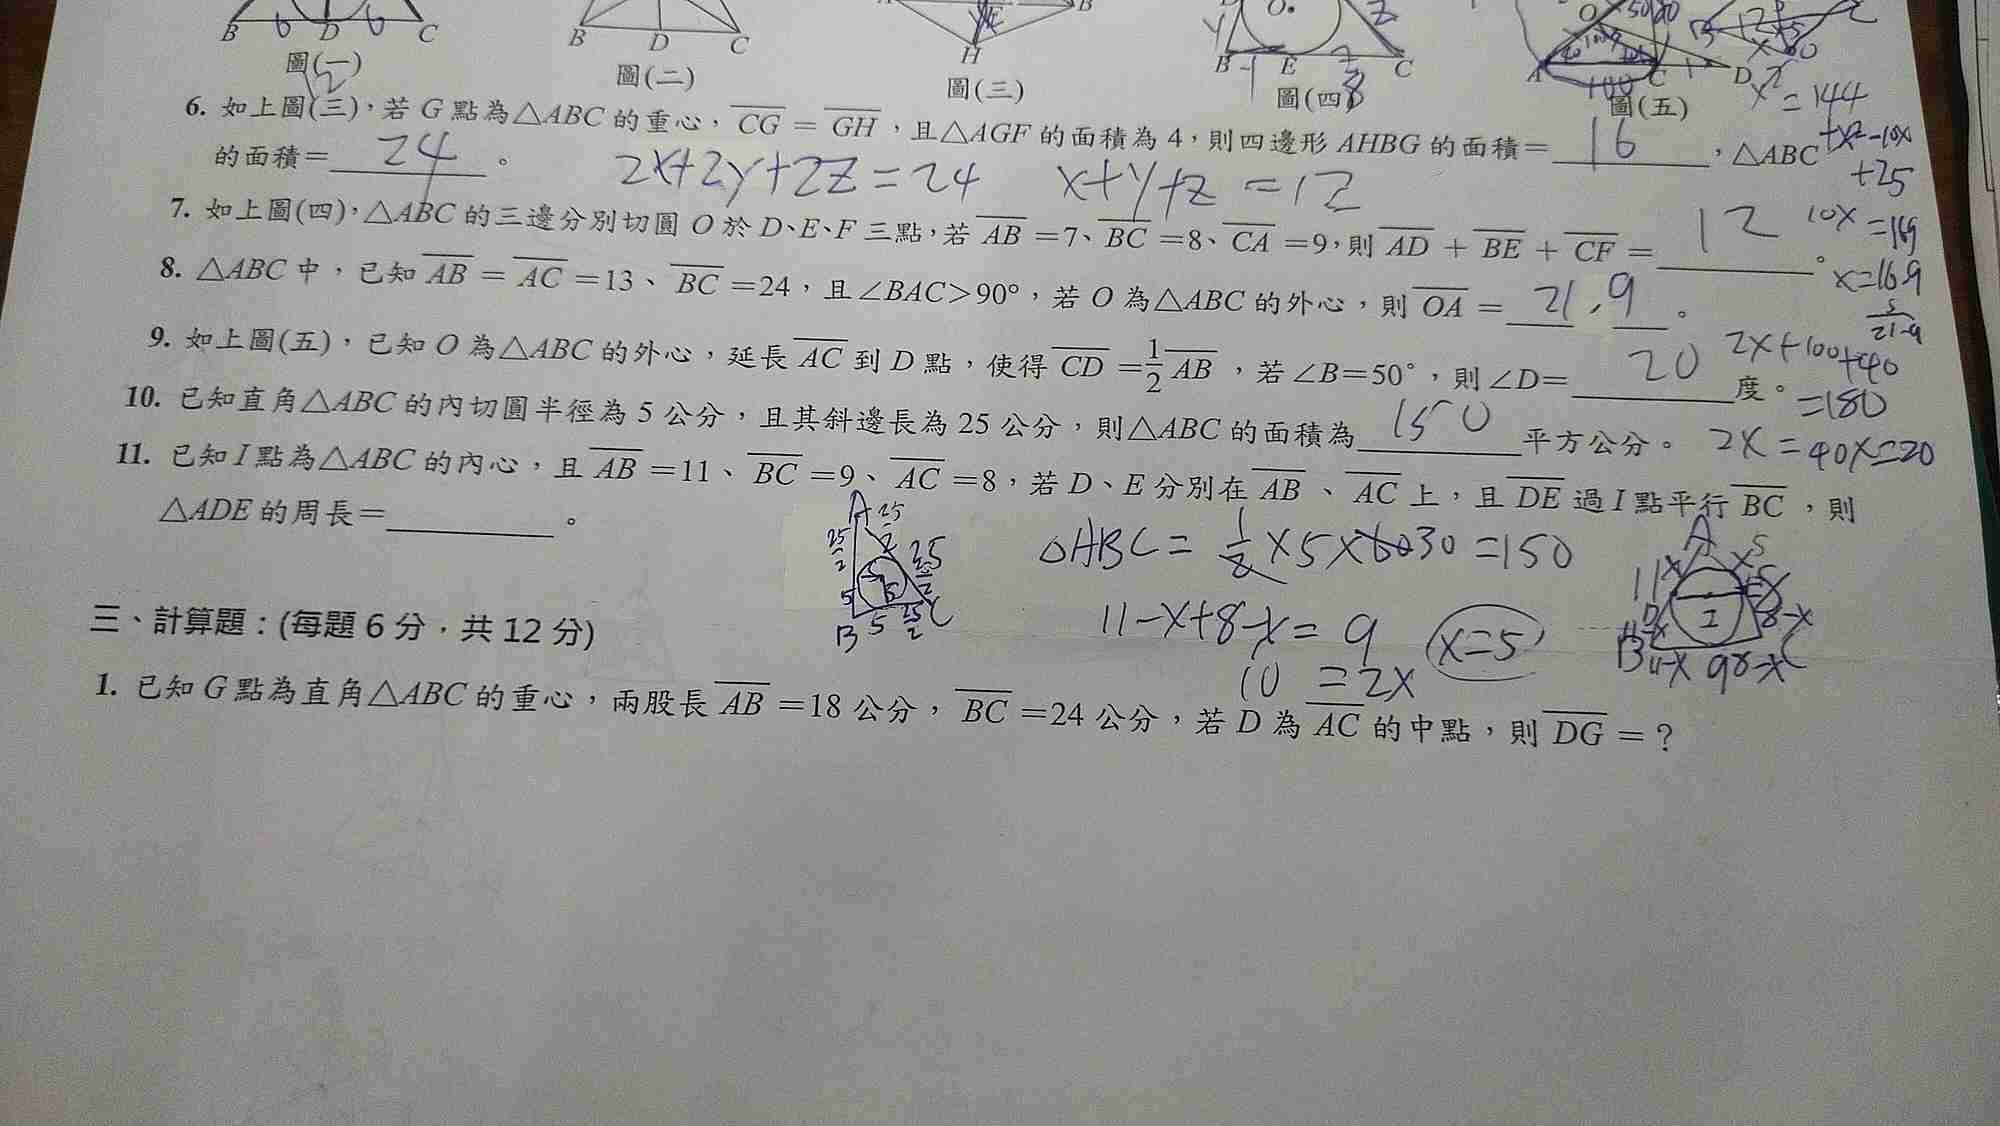 B D C
B D C
H B
B E C
A C D
6 6
圖(一)
圖(二)
圖(三)
圖(四)
圖(五)
x² = 144
+x²-10x
+25
10x = 169
x = 16.9
5
21.9
6. 如上圖(三)，若 G 點為△ABC 的重心，CG = GH，且△AGF 的面積為 4，則四邊形 AHBG 的面積= 16 ，△ABC
的面積= 24 。
2x+2y+2z=24 x+y+z=12
7. 如上圖(四)，△ABC 的三邊分別切圓 O 於 D、E、F 三點，若 AB =7、BC =8、CA =9，則 AD + BE + CF = 12 。
8. △ABC 中，已知 AB = AC =13、BC =24，且∠BAC>90°，若 O 為△ABC 的外心，則 OA = 21.9 。
9. 如上圖(五)，已知 O 為△ABC 的外心，延長 AC 到 D 點，使得 CD = 1/2 AB，若∠B=50°，則∠D= 20 度。
2x+100+40
=180
2x=40 x=20
10. 已知直角△ABC 的內切圓半徑為 5 公分，且其斜邊長為 25 公分，則△ABC 的面積為 150 平方公分。
11. 已知 I 點為△ABC 的內心，且 AB =11、BC =9、AC =8，若 D、E 分別在 AB、AC 上，且 DE 過 I 點平行 BC，則
△ADE 的周長= 。
△ABC = 1/2 ×5×30 =150
11-x+8-x= 9
10 =2x
x=5
三、計算題：(每題 6 分，共 12 分)
1. 已知 G 點為直角△ABC 的重心，兩股長 AB =18 公分，BC =24 公分，若 D 為 AC 的中點，則 DG = ？